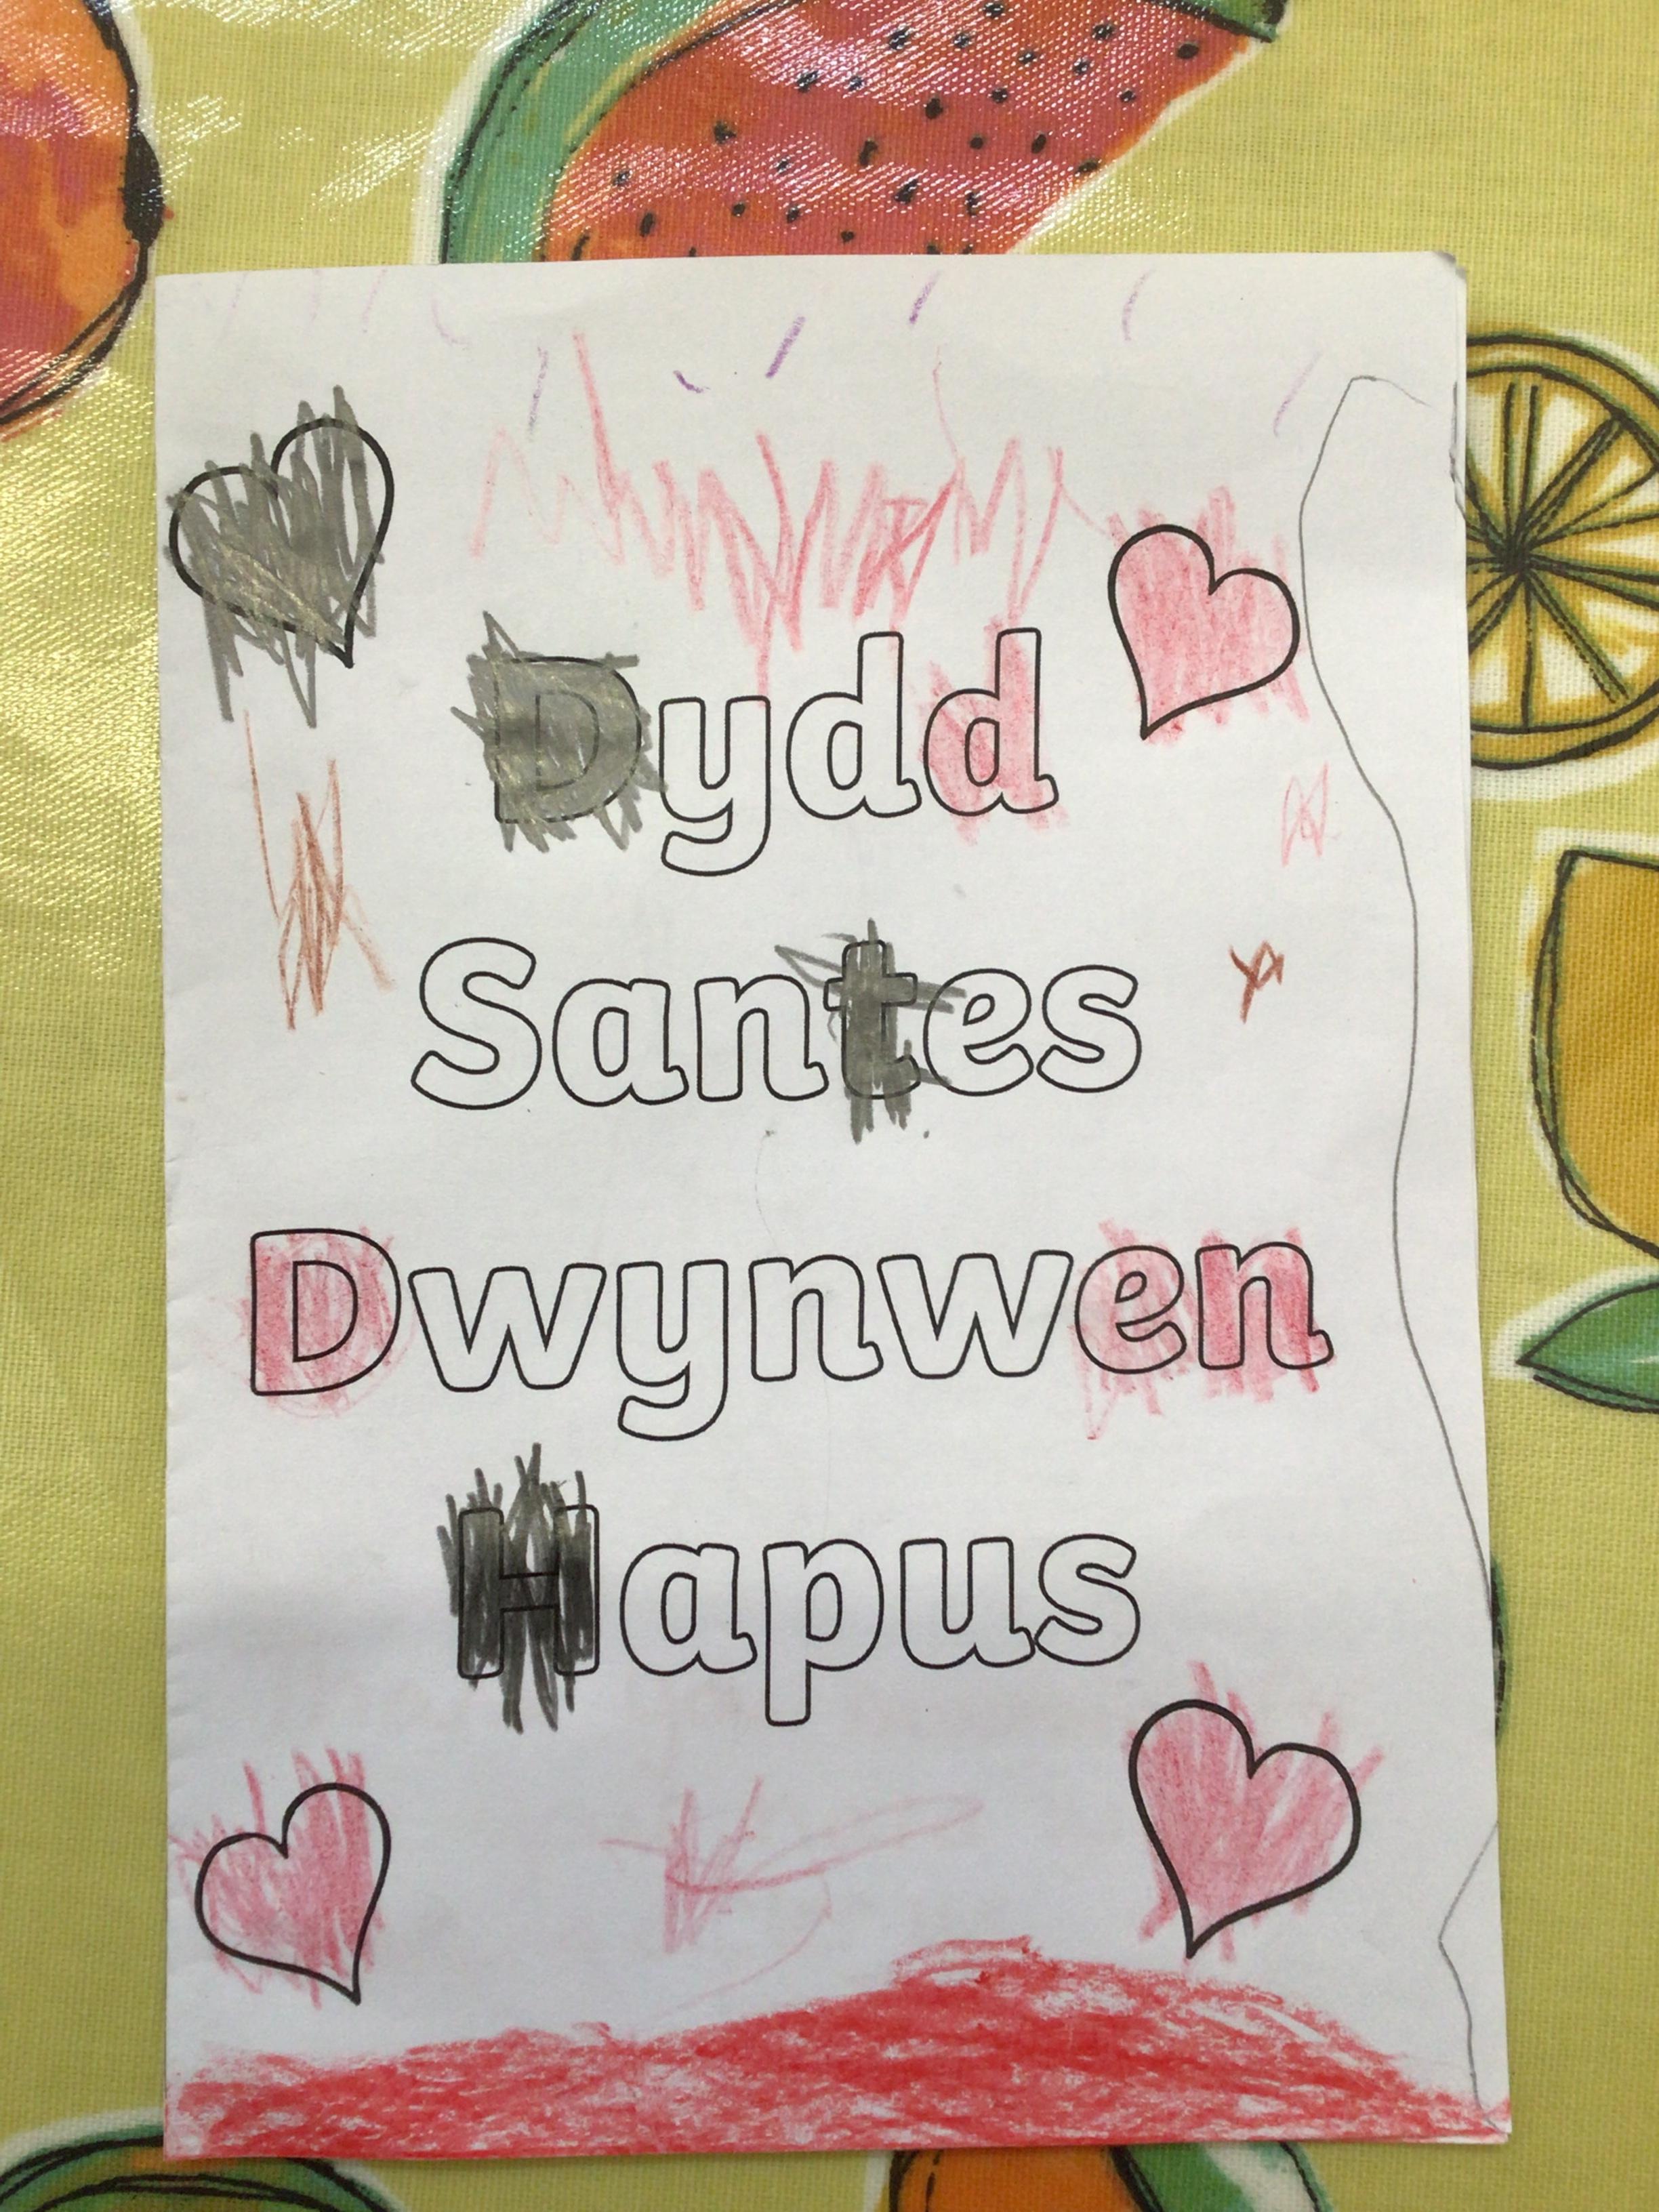 Dydd
Santes
Dwynwen
Hapus